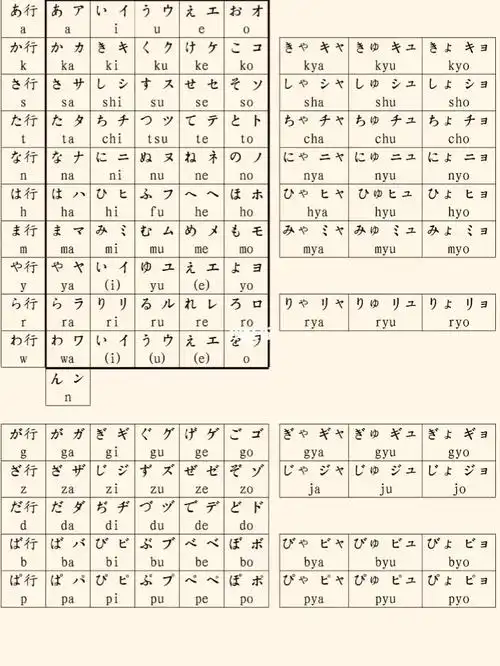 あ行 あ ア い イ う ウ え エ お オ
a a i u e o
か行 か カ き キ く ク け ケ こ コ きゃ キャ きゅ キュ きょ キョ
k ka ki ku ke ko kya kyu kyo
さ行 さ サ し シ す ス せ セ そ ソ しゃ シャ しゅ シュ しょ ショ
s sa shi su se so sha shu sho
た行 た タ ち チ つ ツ て テ と ト ちゃ チャ ちゅ チュ ちょ チョ
t ta chi tsu te to cha chu cho
な行 な ナ に ニ ぬ ヌ ね ネ の ノ にゃ ニャ にゅ ニュ にょ ニョ
n na ni nu ne no nya nyu nyo
は行 は ハ ひ ヒ ふ フ へ ヘ ほ ホ ひゃ ヒャ ひゅ ヒュ ひょ ヒョ
h ha hi fu he ho hya hyu hyo
ま行 ま マ み ミ む ム め メ も モ みゃ ミャ みゅ ミュ みょ ミョ
m ma mi mu me mo mya myu myo
や行 や ヤ い イ ゆ ユ え エ よ ヨ
y ya (i) yu (e) yo
ら行 ら ラ り リ る ル れ レ ろ ロ りゃ リャ りゅ リュ りょ リョ
r ra ri ru re ro rya ryu ryo
わ行 わ ワ い イ う ウ え エ を ヲ
w wa (i) (u) (e) o
ん ン
n
が行 が ガ ぎ ギ ぐ グ げ ゲ ご ゴ ぎゃ ギャ ぎゅ ギュ ぎょ ギョ
g ga gi gu ge go gya gyu gyo
ざ行 ざ ザ じ ジ ず ズ ぜ ゼ ぞ ゾ じゃ ジャ じゅ ジュ じょ ジョ
z za zi zu ze zo ja ju jo
だ行 だ ダ ぢ ヂ づ ヅ で デ ど ド
d da di du de do
ば行 ば バ び ビ ぶ ブ べ ベ ぼ ボ びゃ ビャ びゅ ビュ びょ ビョ
b ba bi bu be bo bya byu byo
ぱ行 ぱ パ ぴ ピ ぷ プ ぺ ペ ぽ ポ ぴゃ ピャ ぴゅ ピュ ぴょ ピョ
p pa pi pu pe po pya pyu pyo